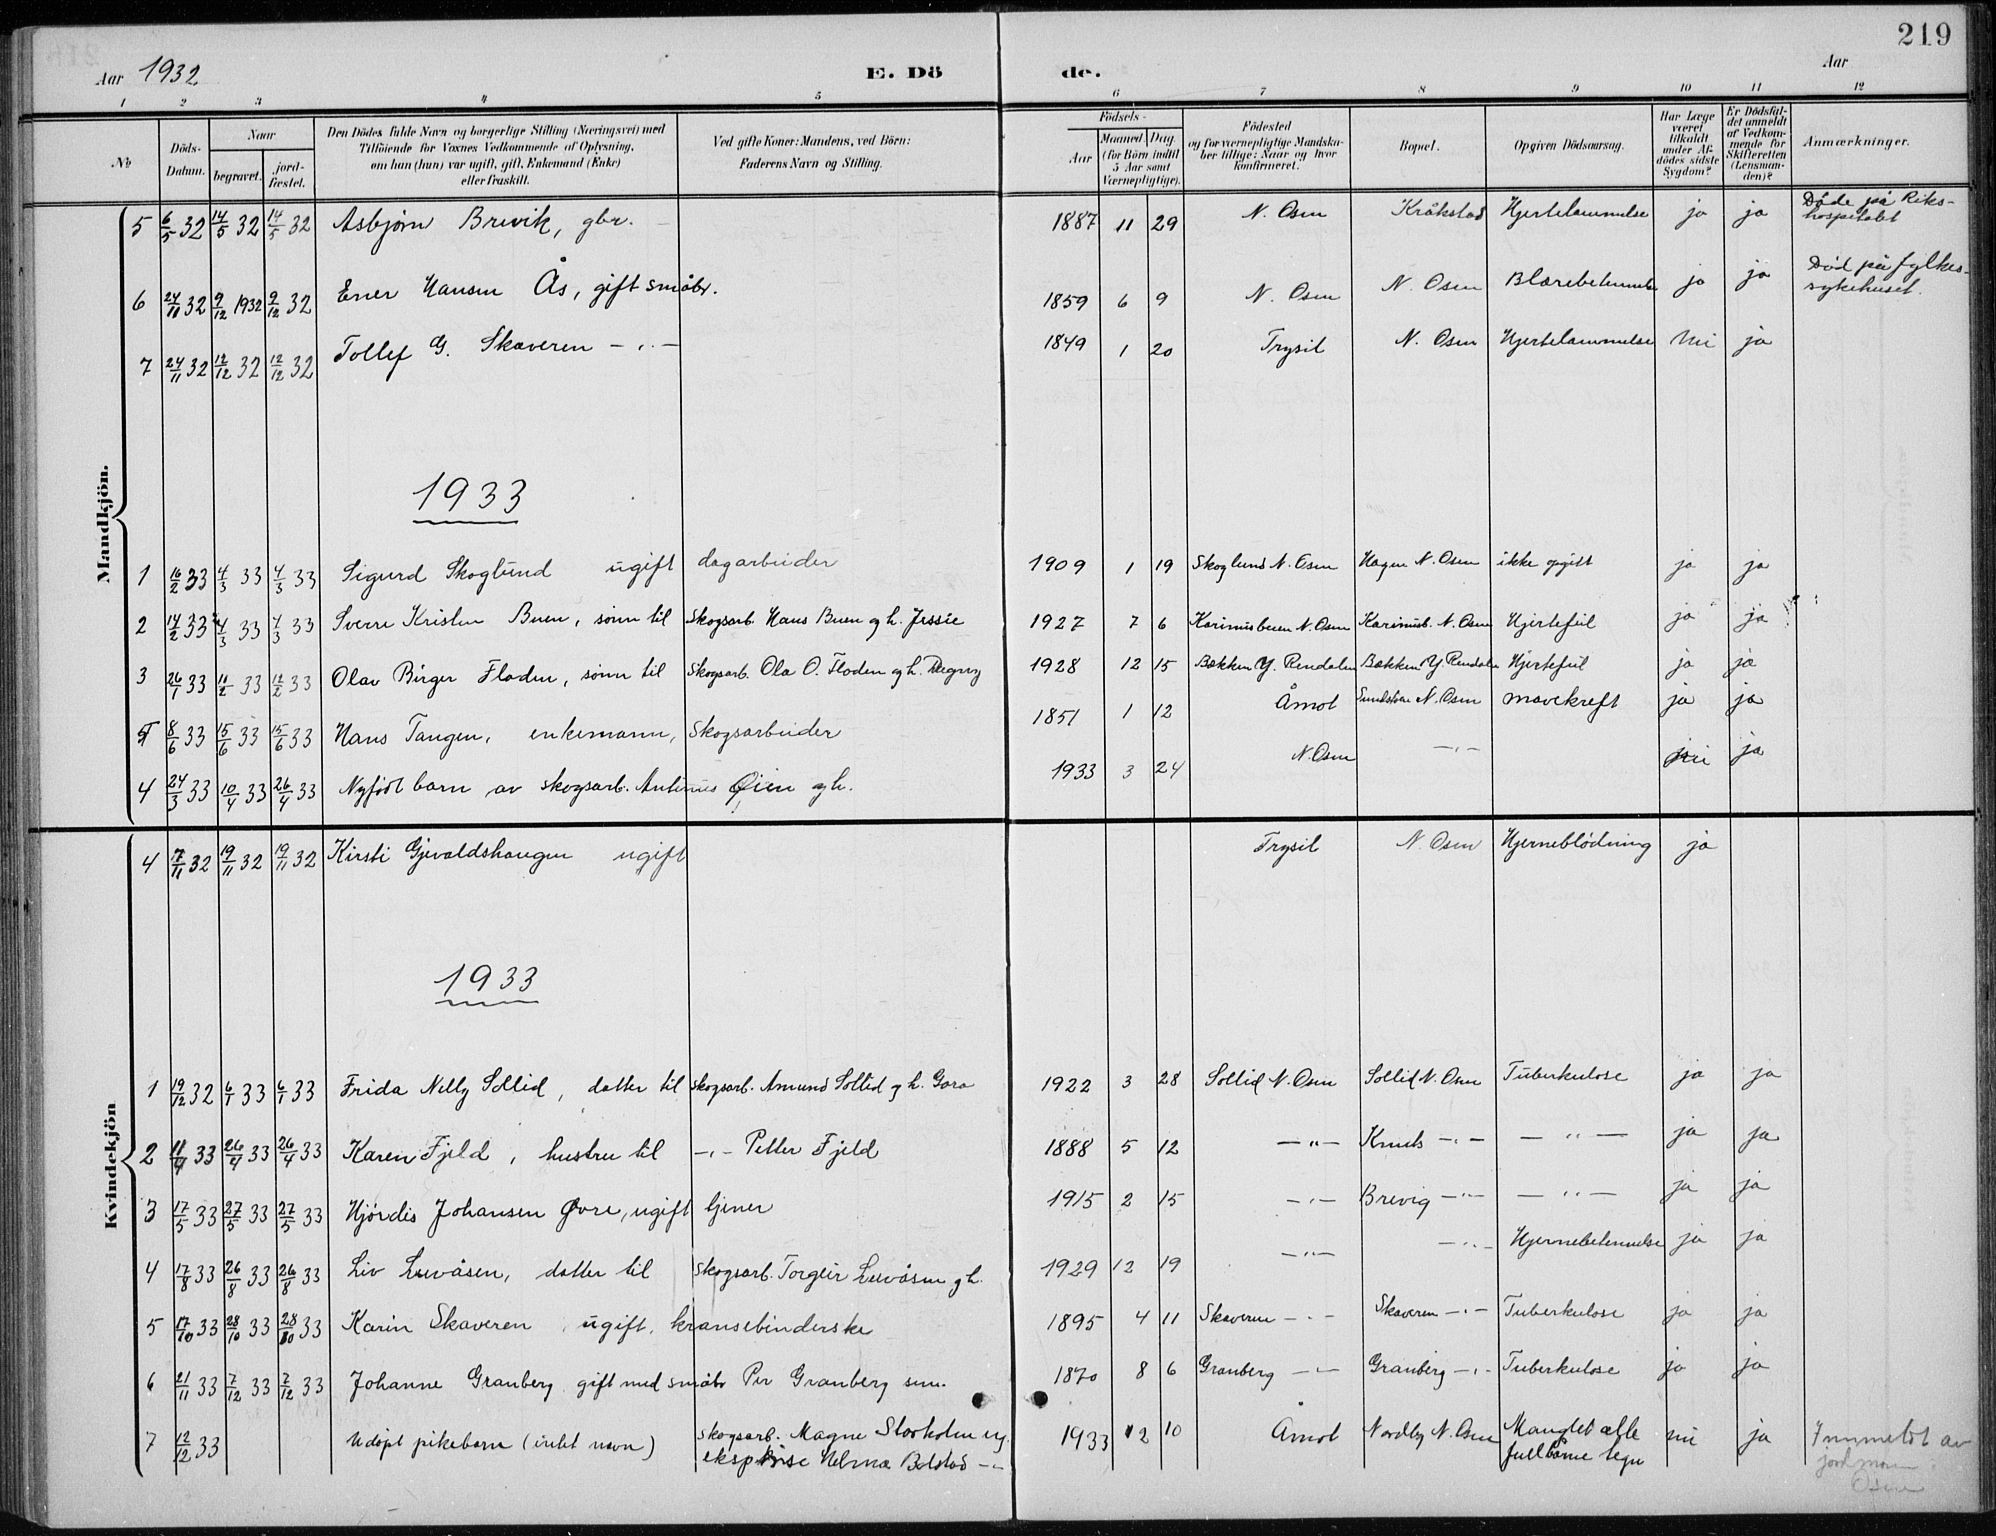 219
Aar 1932
E. Dö
de.
Aar
1 2 3 4 5 6 7 8 9 10 11 12
No
Döds-
Datum.
Naar
begravet.
jord-
fæstet.
Den Dödes fulde Navn og borgerlige Stilling (Næringsvei) med
Tilföiende for Voxnes Vedkommende af Oplysning,
om han (hun) var ugift, gift, Enkemand (Enke)
eller fraskilt.
Ved gifte Koner: Mandens, ved Börn:
Faderens Navn og Stilling.
Födsels-
Aar
Maaned Dag
(for Börn indtil
5 Aar samt
Værnepligtige).
Födested
og for værnepligtige Mandska-
ber tillige: Naar og hvor
konfirmeret.
Bopæl.
Opgiven Dödsaarsag.
Har Læge
været
tilkaldt
under Af-
dödes sidste
Sygdom?
Er Dödsfal-
det anmeldt
af Vedkom-
mende for
Skifteretten
(Lensman-
den)?
Anmærkninger.
Mandkjön.
5 6/5 32 14/5 32 14/5 32 Asbjørn Brevik, gbr. 1887 11 29 N. Osen Kråkstad Hjertelammelse ja ja Døde på Riks-
hospitalet
6 24/11 32 9/12 1932 9/12 32 Ener Hansen Ås, gift småbr. 1859 6 9 N. Osen N. Osen Blærebetennelse ja ja Død på fylkes-
sykehuset.
7 24/11 32 12/12 32 12/12 32 Tollef G. Skaveren -"- 1849 1 20 Trysil N. Osen Hjertelammelse nei ja
1933
1 16/2 33 4/3 33 4/3 33 Sigurd Skoglund ugift dagarbeider 1909 1 19 Skoglund N. Osen Hagen N. Osen ikke opgitt ja ja
2 14/2 33 4/3 33 4/3 33 Sverre Kristen Buen, sønn til Skogsarb. Hans Buen og h. Jessie 1927 7 6 Karinusbuen N. Osen Karinusb. N. Osen Hjertefeil ja ja
3 26/1 33 11/2 33 11/2 33 Olav Birger Floden, sønn til Skogsarb. Ola O. Floden og h. Dagny 1928 12 15 Bækken Y. Rendalen Bækken Y. Rendalen Hjertefeil ja ja
5 8/6 33 15/6 33 15/6 33 Hans Tangen, enkemann, Skogsarbeider 1851 1 12 Åmot N. Osen mavekreft ja ja
4 24/3 33 10/4 33 26/4 33 Nyfødt barn av skogsarb. Antinus Øien og h. 1933 3 24 N. Osen -"- nei ja
Kvindekjön
4 7/11 32 19/11 32 19/11 32 Kirsti Gjevaldshaugen ugift Trysil N. Osen Hjerneblödning ja
1933
1 19/12 32 6/1 33 6/1 33 Frida Nelly Sollid, datter til skogsarb. Amund Sollid og h. Gora 1922 3 28 Sollid N. Osen Sollid N. Osen Tuberkulose ja ja
2 11/4 33 26/4 33 26/4 33 Karen Fjeld, hustru til -"- Petter Fjeld 1888 5 12 -"- Knuts -"- -"- ja ja
3 17/5 33 27/5 33 27/5 33 Hjørdis Johansen Øvre, ugift tjener 1915 2 15 -"- Brevig -"- -"- ja ja
4 17/8 33 26/8 33 26/8 33 Liv Luvåsen, datter til skogsarb. Torgeir Luvåsen og h. 1929 12 19 -"- -"- Hjernebetennelse ja ja
5 17/10 33 28/10 33 28/10 33 Karin Skaveren, ugift, kransebinderske 1895 4 11 Skaveren -"- Skaveren -"- Tuberkulose ja ja
6 21/11 33 7/12 33 7/12 33 Johanne Granberg gift med småbr Per Granberg sen. 1870 8 6 Granberg -"- Granberg -"- Tuberkulose ja ja
7 12/12 33 Udøpt pikebarn (intet navn) skogsarb. Magne Storholm og
eksp Helma Bolstad -"- 1933 12 10 Åmot Nordby N. Osen Manglet alle
fullbårne tegn nei ja Innmeldt av
jordmoren
Osen